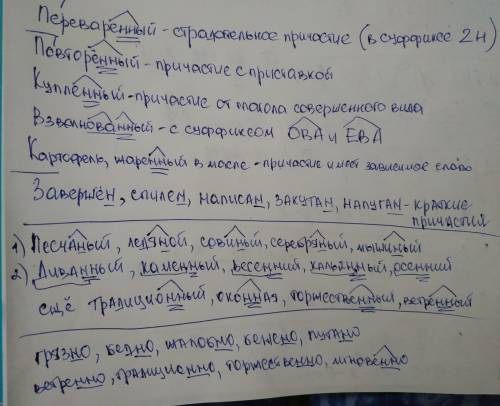 Переварённый - страдательное причастие (в суффиксе 2н)
Повторённый - причастие с приставкой
Куплённый - причастие от глагола совершенного вида
Взволнованный - с суффиксом ОВА и ЕВА
Картофель, жаренный в масле - причастие имеет зависимое слово
Завершён, спилен, написан, закутан, напуган - краткие причастия
1) Песчаный, ледяной, совиный, серебряный, мышиный
2) Диванный, каменный, весенний, осенний
ещё традиционный, оконная, торжественный, ветренный
грязно, бедно, жалобно, бешено, путано
ветренно, традиционно, торжественно, мгновенно